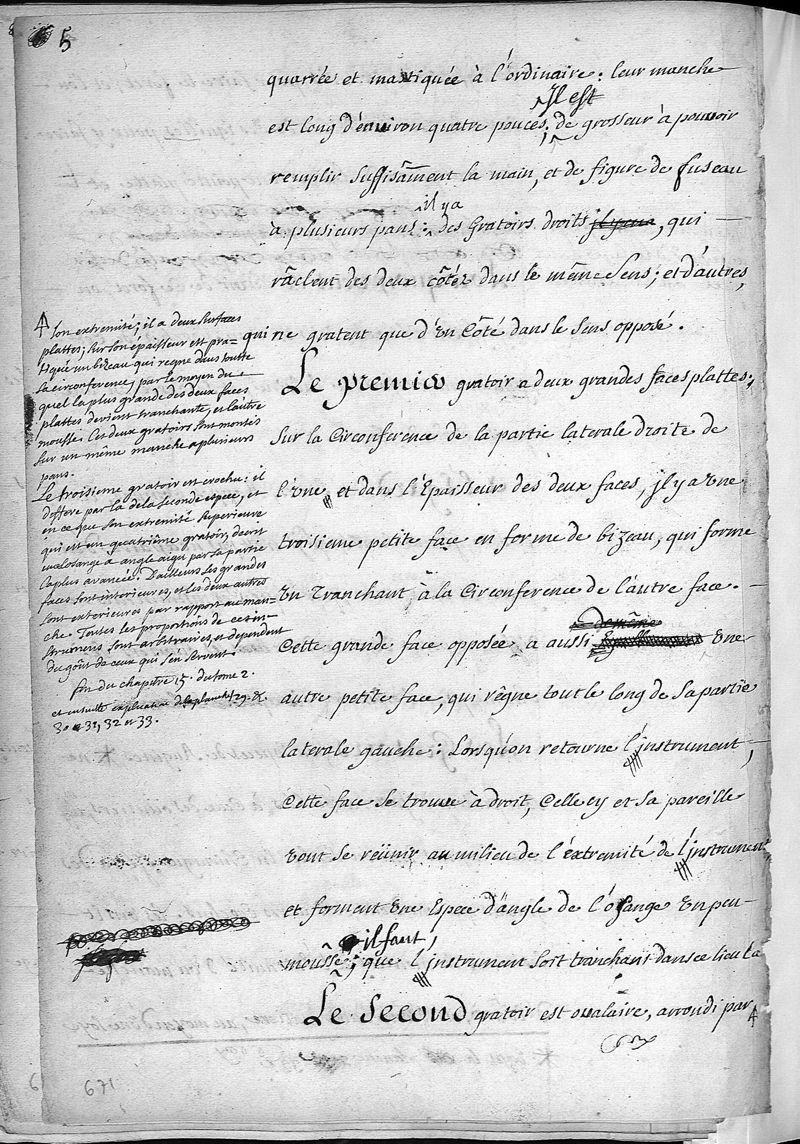 5
quarrée et mastiquée à l'ordinaire : leur manche
Il est
est long d'environ quatre pouces, de grosseur à pouvoir
remplir suffisam̅ent la main, et de figure de fuseau
il y a
à plusieurs pans : des Gratoirs droits, qui
râclent des deux côtéz dans le même sens; et d'autres,
qui ne gratent que d'vn Côté dans le sens opposé.
Le premier gratoir a deux grandes faces plattes;
sur la Circonference de la partie laterale droite de
l'vne, et dans l'Epaisseur des deux faces, il y a vne
troisieme petite face en forme de bizeau, qui forme
vn Tranchant, à la Circonference de l'autre face.
Cette grande face opposée, a aussi vne
autre petite face, qui règne tout le long de sa partie
laterale gauche : Lorsqu'on retourne l'jnstrument,
Cette face se trouve à droit, Celle cy et sa pareille
vont se reünir au milieu de l'éxtremité de l'jnstrument,
et forment vne Espece d'angle de Losange vn peu
il faut,
mousse; que l'jnstrument soit tranchant dans ce lieu la
Le Second gratoir est ovalaire, arrondi par
son extremité; il a deux surfaces
plattes; sur son épaisseur est pra=
tiqué un bizeau qui regne dans toutte
sa circonférence, par le moyen du
quel la plus grande des deux faces
plattes devient tranchante, et l'autre
mousse. Ces deux gratoirs sont montés
sur un même manche a plusieurs
pans.
Le troisieme gratoir en crochu : il
differe par là de la seconde espece, et
en ce que son extremité superieure
qui est un quatriéme gratoir, decrit
un losange a angle aigu par sa partie
la plus avancée. D'ailleurs ses grandes
faces sont interieures, et les deux autres
sont exterieures par rapport au man-
che. Toutes les proportions de ces in-
strumens sont arbitraires, et dependent
du goût de ceux qui s'en servent.
fin du chapitre 15. du tome 2.
et ensuitte explication de la planche 29. &
30 31, 32 et 33.
671